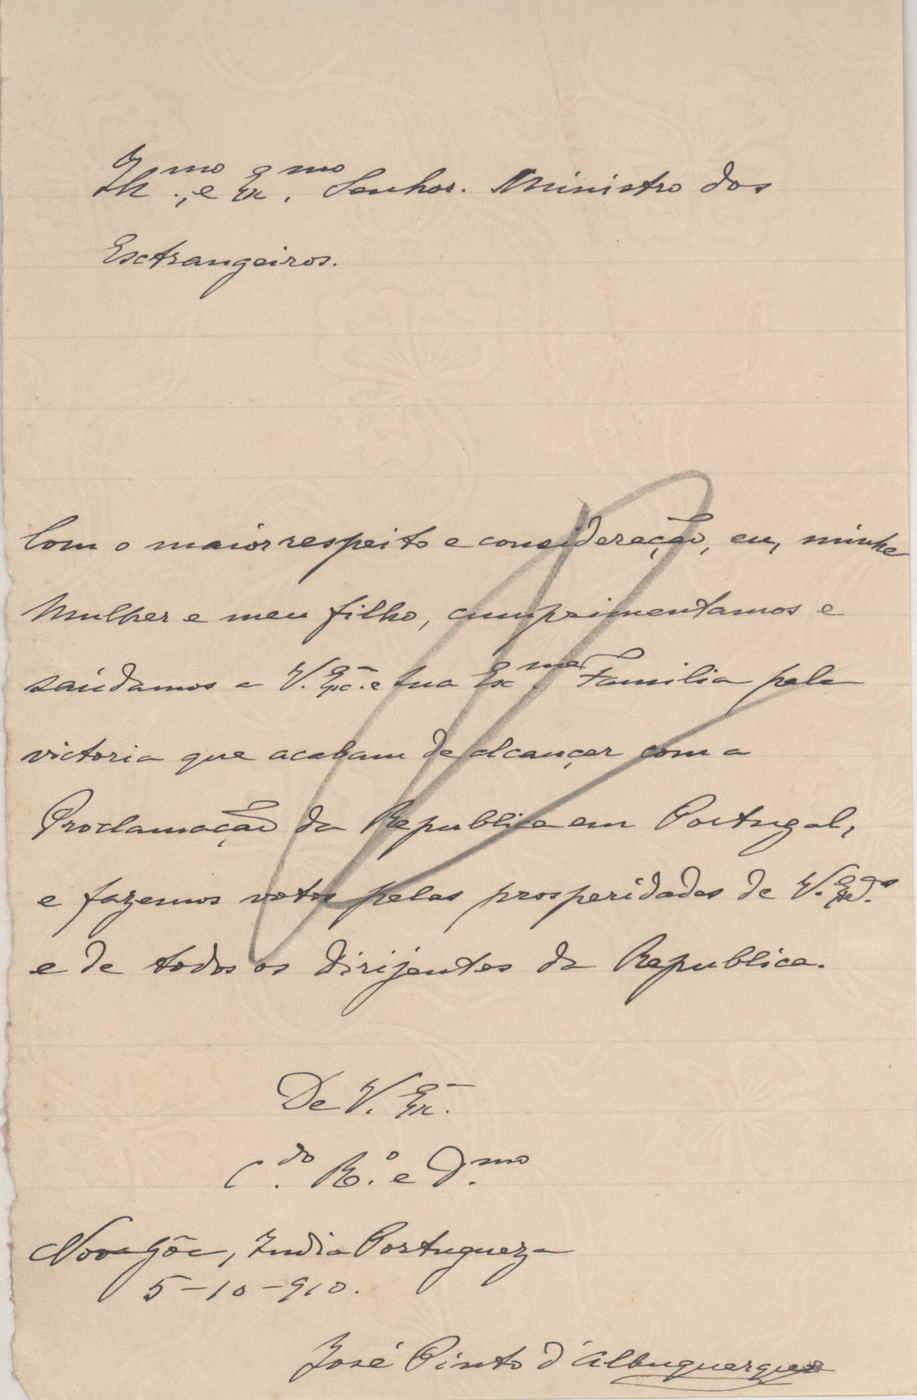 Ill.mo, e Ex.mo Senhor. Ministro dos
Esctrangeiros.
Com o maior respeito e consideração, eu, minha
Mulher e meu filho, cumprimentamos e
saúdamos a V. Exc.ª e sua Ex.ma Familia pela
victoria que acabam de alcançar com a
Proclamação da Republica em Portugal,
e fazemos votos pelas prosperidades de V. Ex.as
e de todos os dirijentes da Republica.
De V. Ex.ª
C.do R.o e D.mo
Nova Gôa, India Portugueza
5-10-910.
José Pinto d'Albuquerque